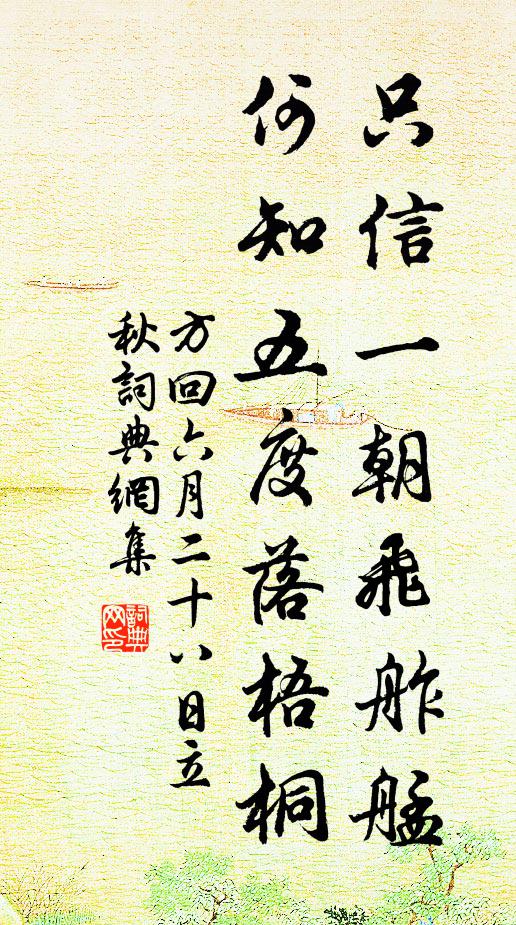 只信一朝飛舴艋
何知五度落梧桐
方回六月二十八日立
秋詞典網集
詞典
网印